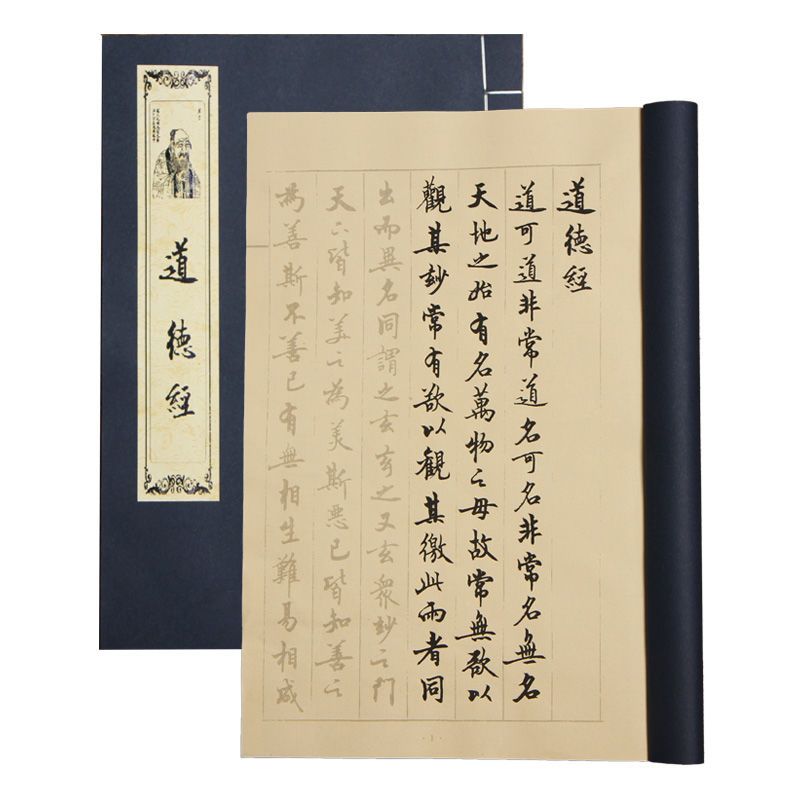 道德經
道德經
道可道非常道名可名非常名無名
天地之始有名萬物之母故常無欲以
觀其妙常有欲以觀其徼此兩者同
出而異名同謂之玄玄之又玄衆妙之門
天下皆知美之為美斯惡已皆知善之
為善斯不善已有無相生難易相成
· 1 ·